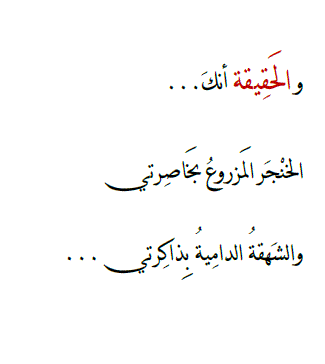 والحَقِيقة أنكَ...
الخنْجَر المَزروعُ بخَاصِرتي
والشَهقةُ الدامِيةُ بِذاكِرتي ...